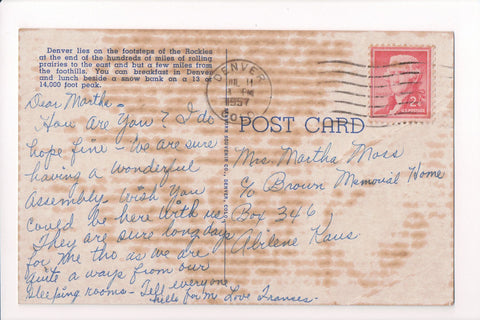 Denver lies on the footsteps of the Rockies
at the end of the hundreds of miles of rolling
prairies to the east and but a few miles from
the foothills. You can breakfast in Denver
and lunch beside a snow bank on a 13 or
14,000 foot peak.
DENVER
PM
1957
COLO
2¢
U.S. POSTAGE
POST CARD
DENVER, COLO.
Dear Martha -
How Are You? I do
hope fine - We are sure
having a Wonderful
Assembly Wish You
Could be here With us
They are sure long days
for me tho as we are
quite a ways from our
sleeping rooms - Tell everyone
hello for m Love Frances.
Mrs. Martha Moss
c/o Brown Memorial Home
Box 346
Abilene Kans.